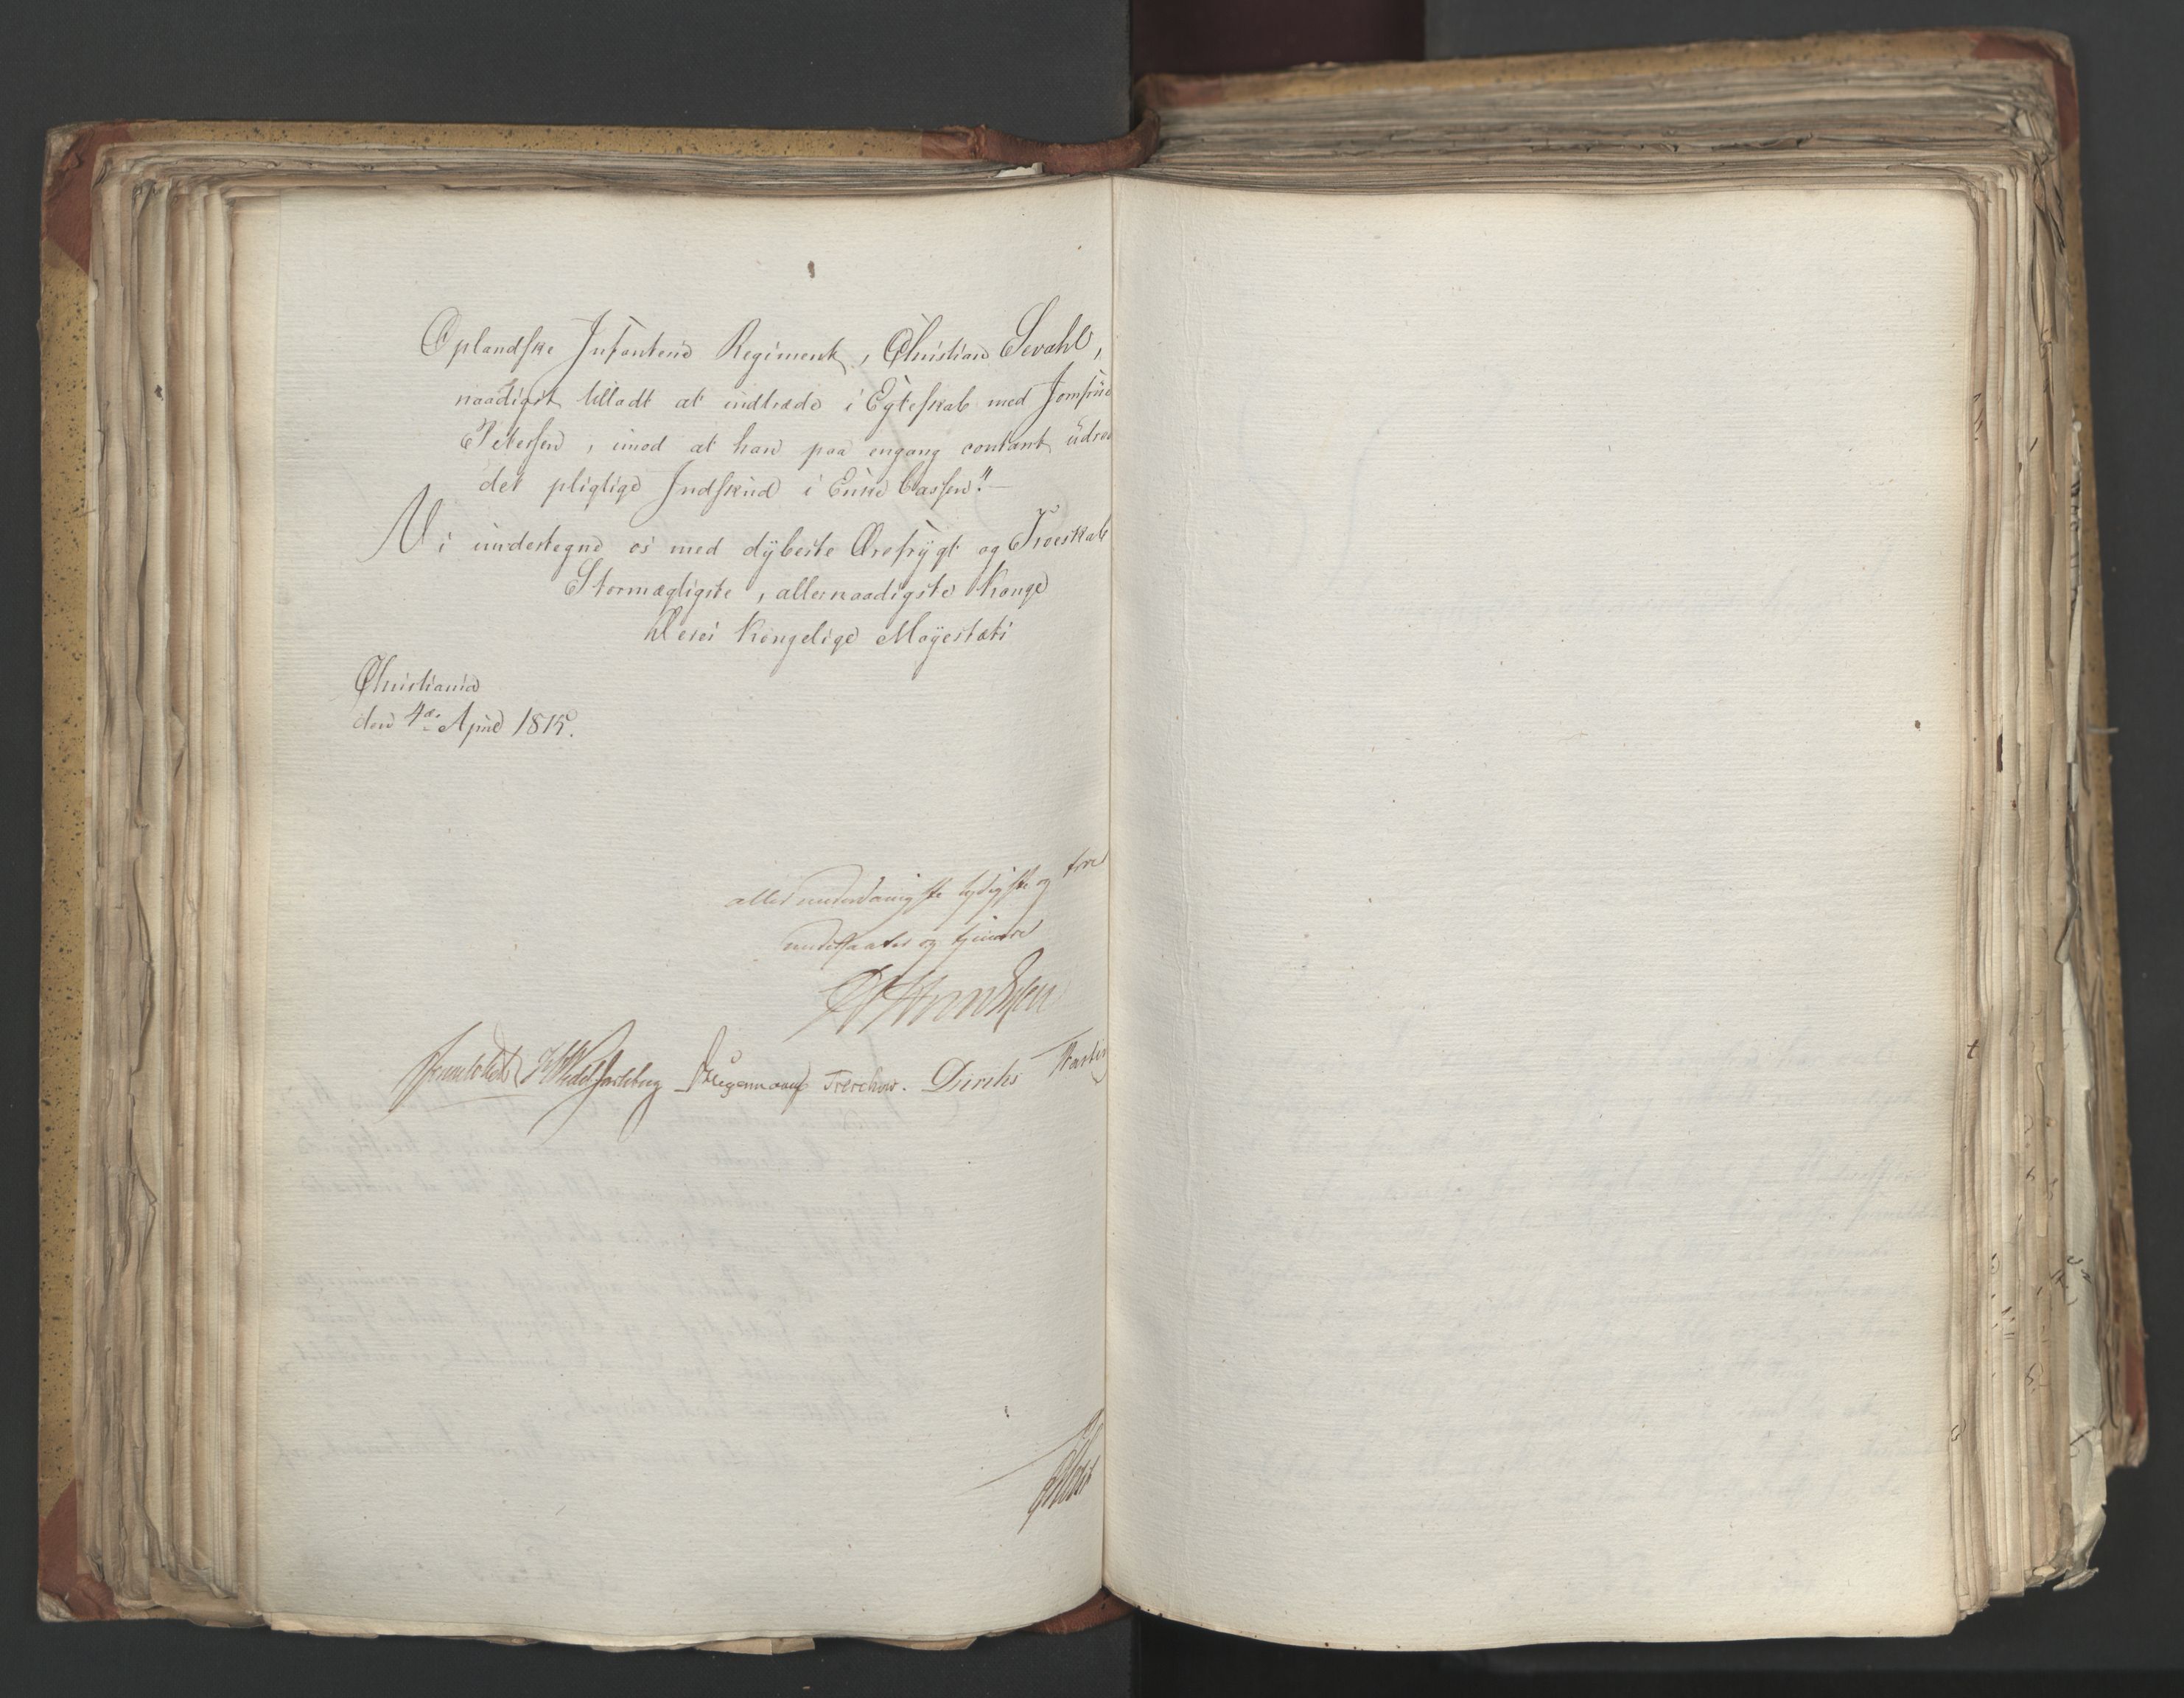 Oplandske Infanterie Regiment, Christian Sevahl,
naadigst tilladt at indtræde i Egteskab med Jomfrue
Petersen, imod at han paa engang contant üdred
det pligtige Indskud i Enke Cassen!! —
Vi ündertegne os med dÿbeste Ærefrÿgt og Troeskab
Stormægtigste, allernaadigste Konge
Deres Kongelige Mayestæts
Christiania
den 4de April 1815.
allerunderdanigste lydigste og troe
undersaatter og tjenere
Sommerhielm Wedel Jarlsberg Hegermann Treschow. Diriks Motzfeldt